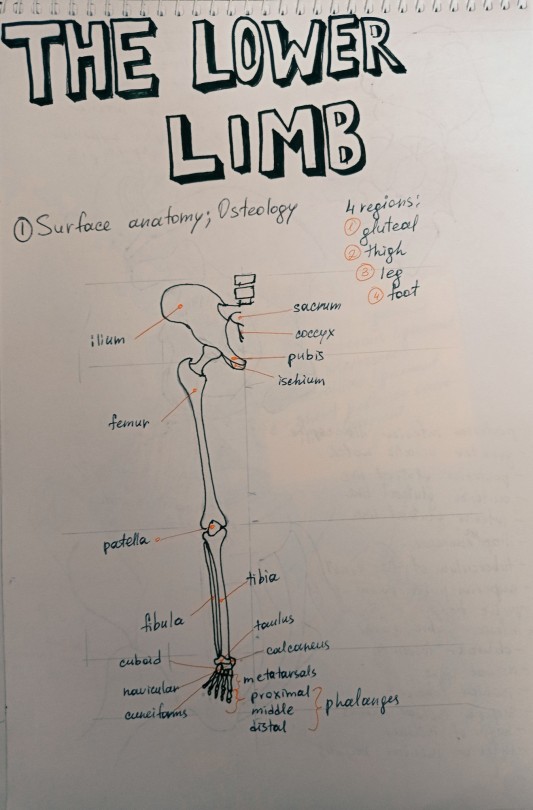 THE LOWER
LIMB
① Surface anatomy; Osteology
4 regions:
① gluteal
② thigh
③ leg
④ foot
sacrum
ilium
coccyx
pubis
ischium
femur
patella
tibia
fibula
taulus
calcaneus
cuboid
metatarsals
navicular
proximal
phalanges
middle
cuneiforms
distal